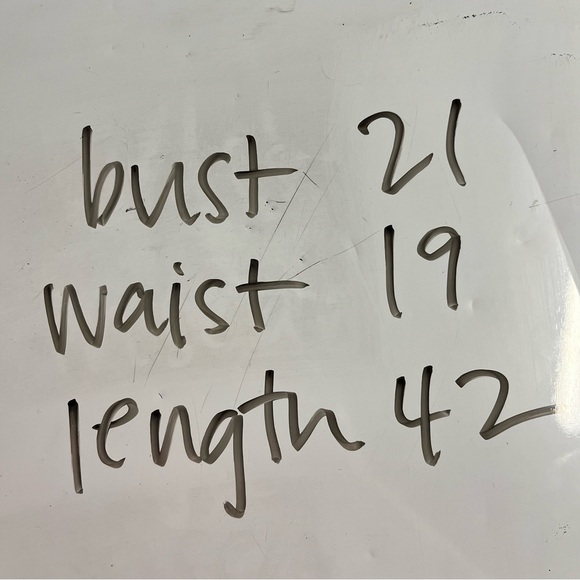 bust 21
waist 19
length 42